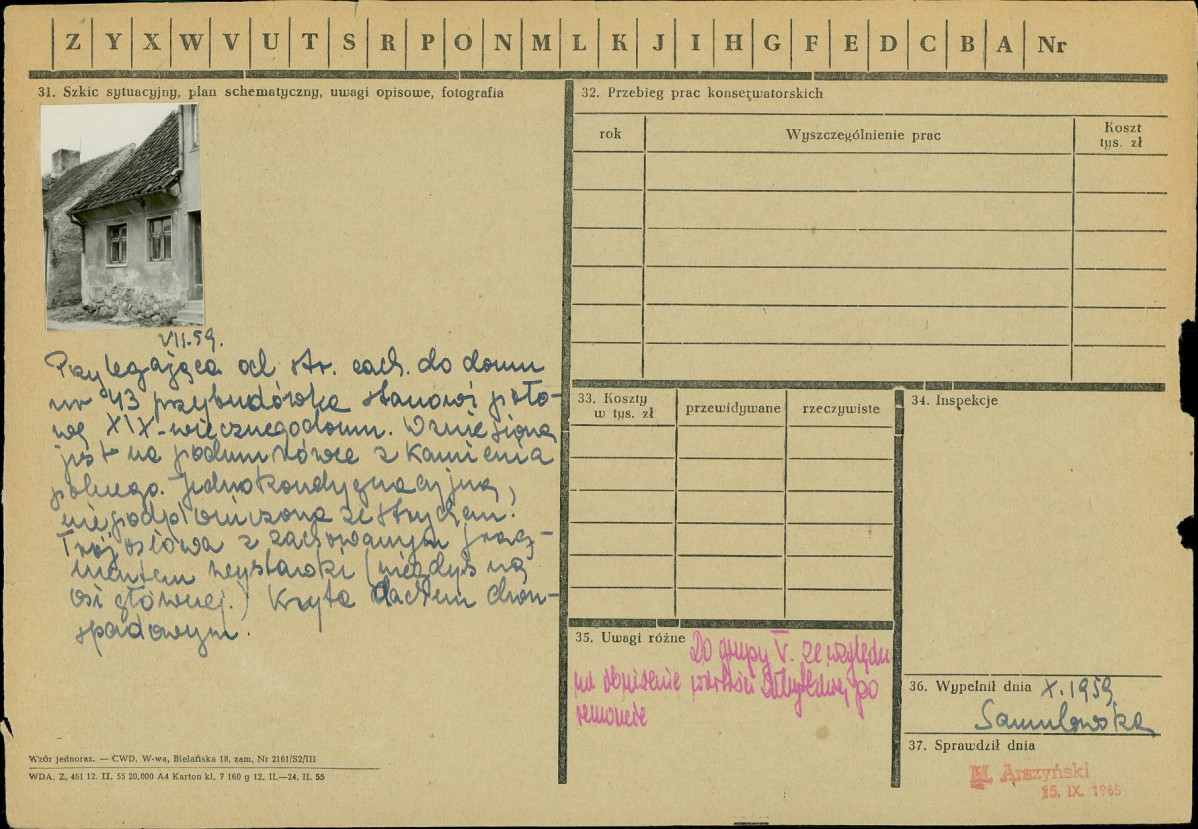 Z Y X W V U T S R P O N M L K J I H G F E D C B A Nr
31. Szkic sytuacyjny, plan schematyczny, uwagi opisowe, fotografia
VII.59.
Przylegająca od str. zach. do domu
nr 43 przybudówka stanowi poło-
wę XIX-wiecznego domu. Wzniesiona
jest na podmurówce z kamienia
polnego. Jednokondygnacyjna,
niepodpiwniczona ze strychem.
Trójosiowa z zachowanym frag-
mentem wystawki (niegdyś na
osi głównej.) Kryta dachem dwu-
spadowym.
Wzór jednoraz. — CWD, W-wa, Bielańska 18, zam. Nr 2161/S2/III
WDA. Z. 461 12. II. 55 20,000 A4 Karton kl. 7 160 g 12. II.—24. II. 55
32. Przebieg prac konserwatorskich
rok
Wyszczególnienie prac
Koszt
tys. zł
33. Koszty
w tys. zł
przewidywane
rzeczywiste
34. Inspekcje
35. Uwagi różne
Do grupy V. ze względu
na obniżenie wartości zabytkowej po
remoncie
36. Wypełnił dnia X.1959
Samulowska
37. Sprawdził dnia
M. Arszyński
15. IX. 1965